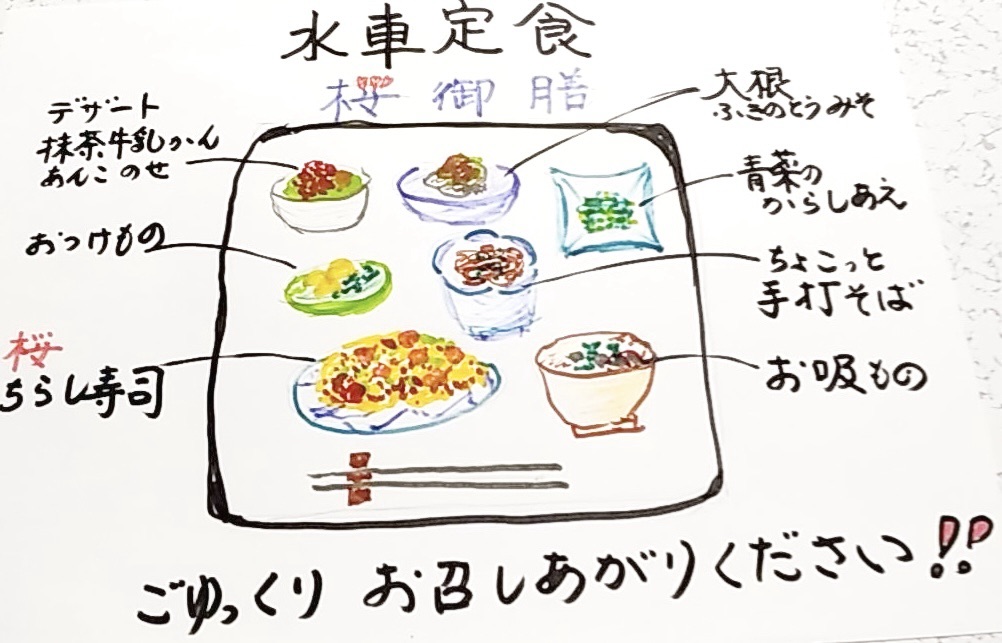 水車定食
桜御膳
デザート
抹茶牛乳かん
あんこのせ
おつけもの
桜
ちらし寿司
大根
ふきのとうみそ
青菜の
からしあえ
ちょこっと
手打そば
お吸もの
ごゆっくり お召しあがりください!!